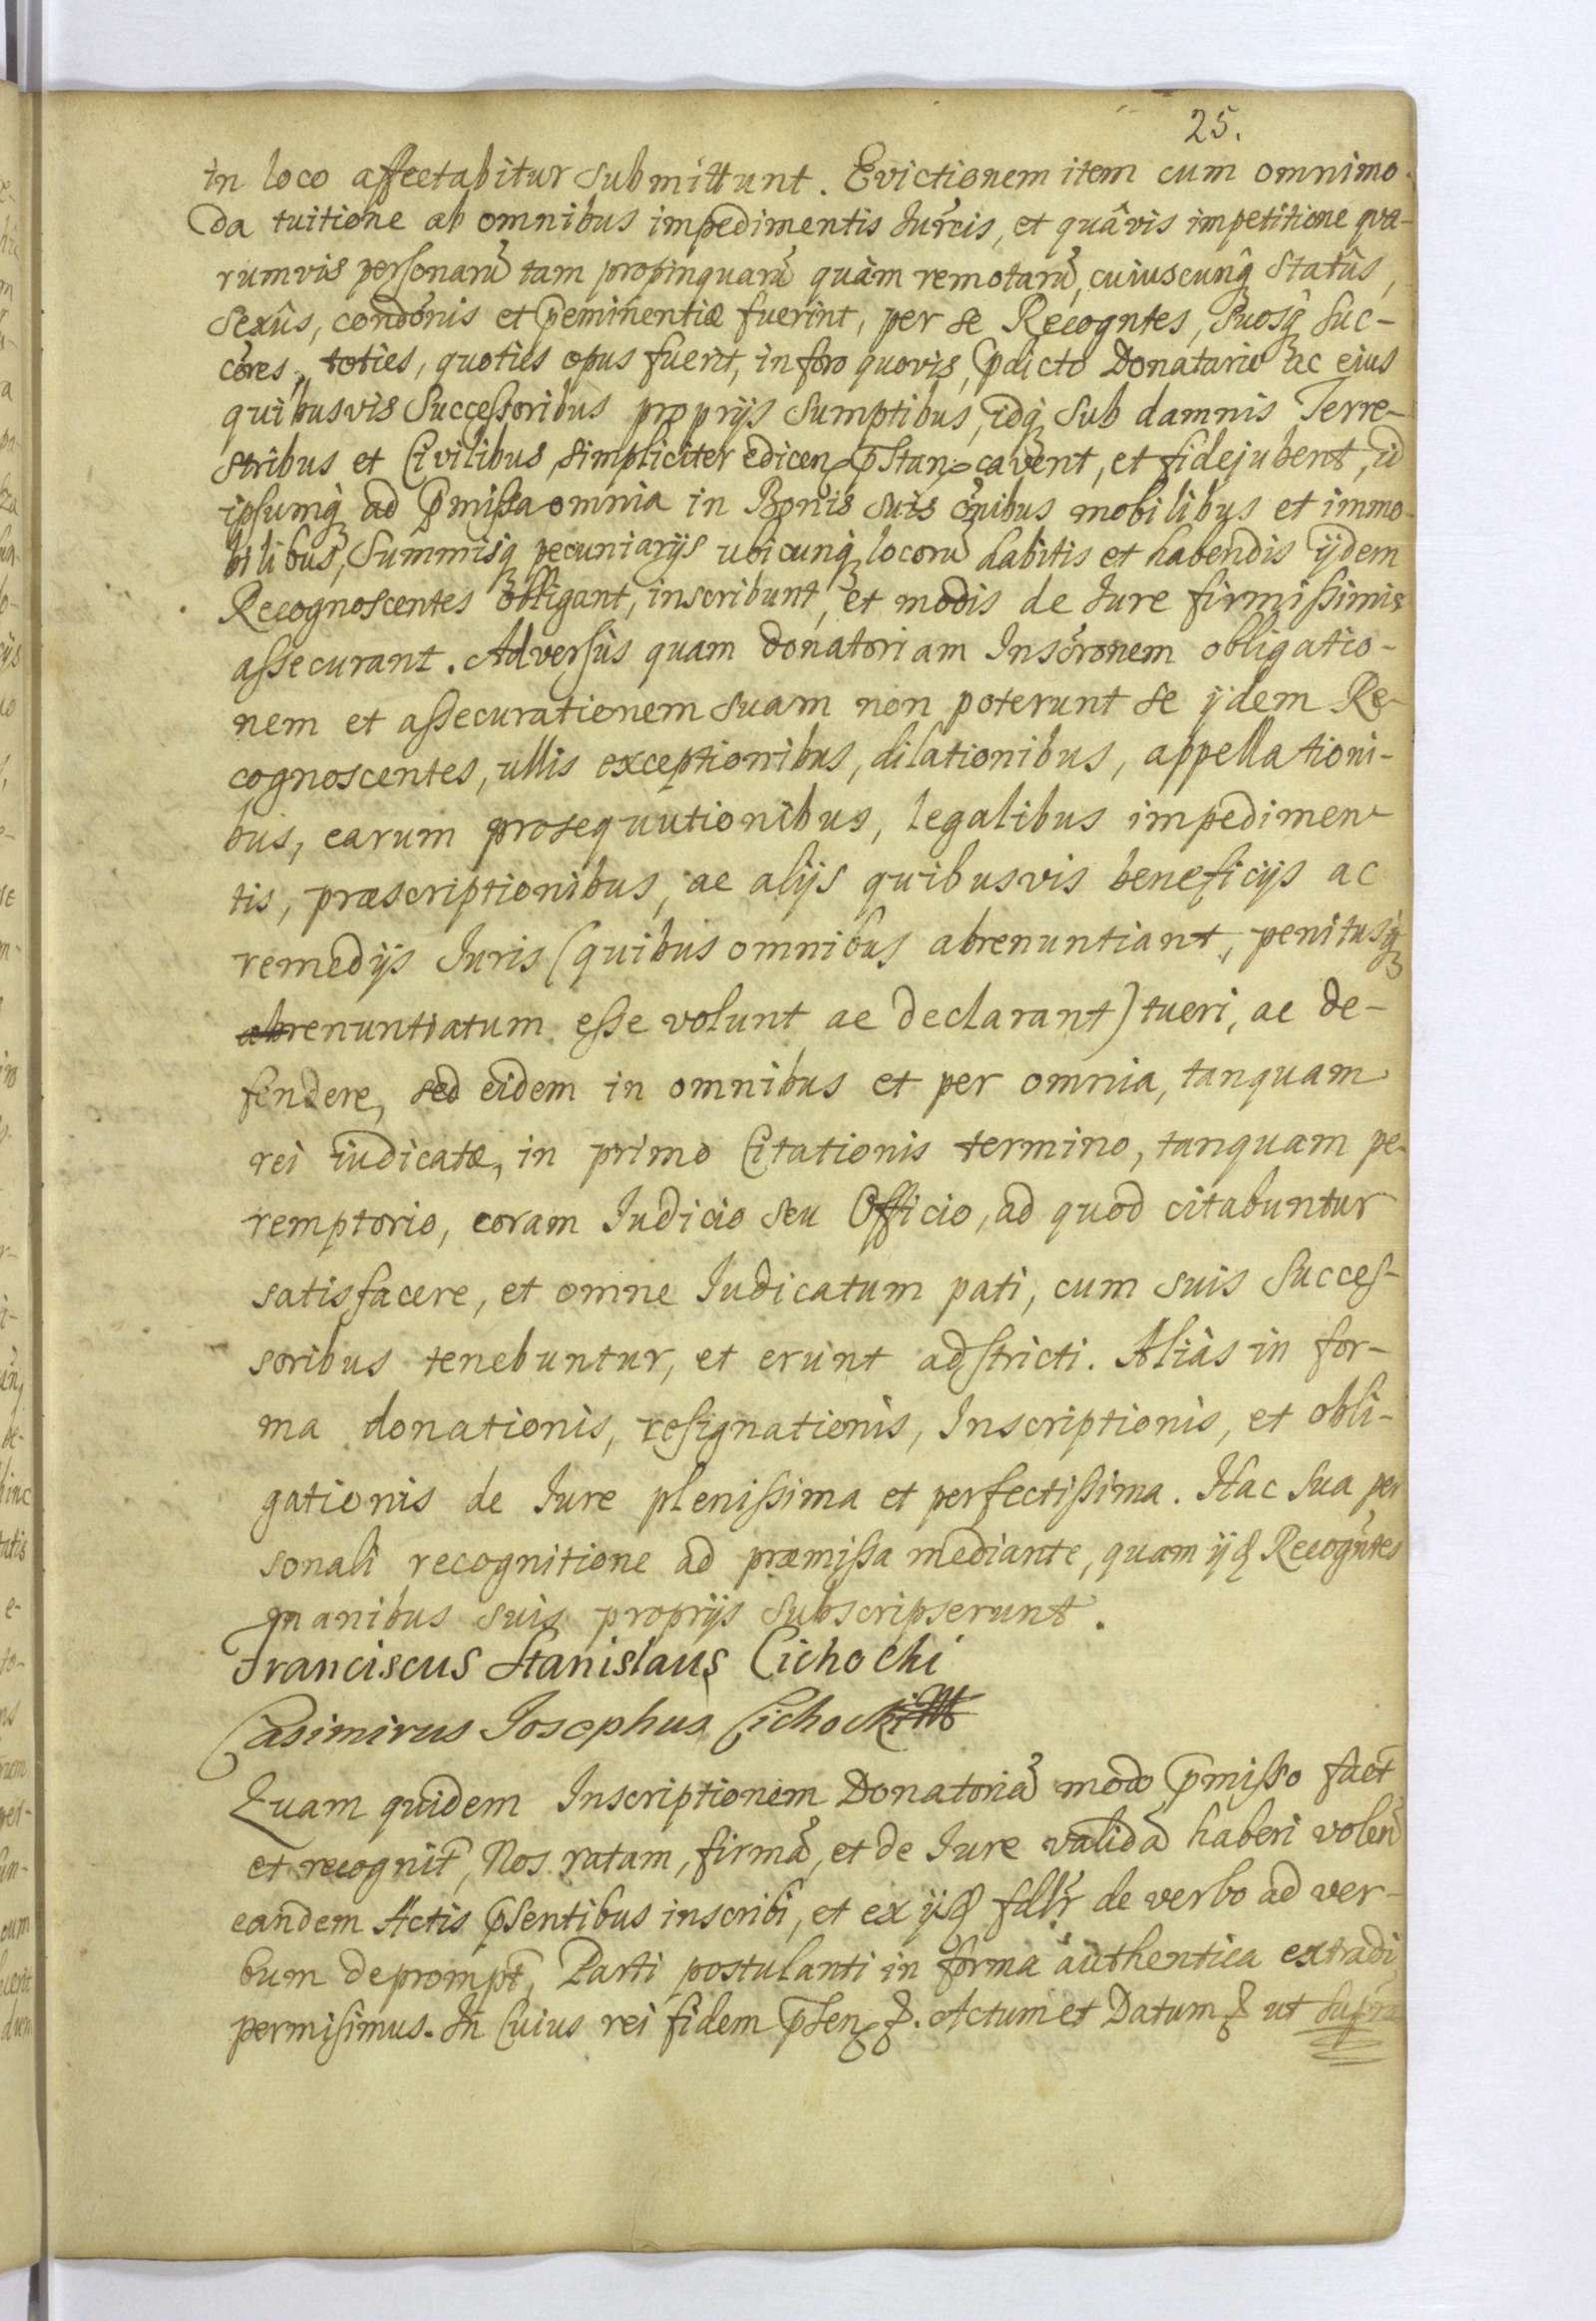 25.
in loco affectabitur submittunt. Evictionem item cum omnimo-
da tuitione ab omnibus impedimentis Iurcis, et quâvis impetitione qua-
rumvis personarũ tam propinquarũ quàm remotarũ, cuiuscunq̃ Statûs,
Sexûs, condõnis et p̃eminentiæ fuerint, per se Recogntes, Suosq̃ Suc-
cõres, toties, quoties opus fuerit, in foro quovis, p̃dicto Donatario ac eius
quibusvis Successoribus proprijs Sumptibus, idq̃ Sub damnis Terre-
stribus et Civilibus, simpliciter edicen p̃stan cavent, et fidejubent, id
ipsumq̃ ad p̃missa omnia in Bonis suis õnibus mobilibus et immo-
bilibus, Summisq̃ pecuniarijs ubicunq̃ locorũ habitis et habendis ijdem
Recognoscentes obligant, inscribunt, et modis de Iure firmissimis
assecurant. Adversùs quam donatoriam Inscrõnem obligatio-
nem et assecurationem suam non poterunt se ijdem Re-
cognoscentes, ullis exceptionibus, dilationibus, appellationi-
bus, earum prosequutionibus, legalibus impedimen-
tis, præscriptionibus, ac alijs quibusvis beneficijs ac
remedijs Iuris (quibus omnibus abrenuntiant, penitusq̃
abrenuntiatum esse volunt ac declarant) tueri, ac de-
fendere, sed eidem in omnibus et per omnia, tanquam
rei iudicatæ, in primo Citationis termino, tanquam pe-
remptorio, coram Iudicio seu Officio, ad quod citabuntur
satisfacere, et omne Iudicatum pati, cum suis Succes-
soribus tenebuntur, et erunt adstricti. Aliàs in for-
ma donationis, resignationis, Inscriptionis, et obli-
gationis de Iure plenissima et perfectissima. Hac sua per
sonali recognitione ad præmissa mediante, quam ijd Recogñtes
manibus suis proprijs subscripserunt.
Franciscus Stanislaus Cichocki
Casimirus Josephus Cichocki
Quam quidem Inscriptionem Donatoriã modo p̃misso fact̃
et recognit̃, Nos ratam, firmã, et de Iure validã haberi volen̄
eandem Actis p̃sentibus inscribi, et ex ijsd fdlr de verbo ad ver-
bum deprompt̃, Parti postulanti in forma authentica extradi
permisimus. In Cuius rei fidem p̃sen &. Actum et Datum & ut supra